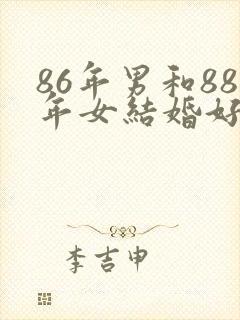 86年男和88
年女結婚好
李吉申